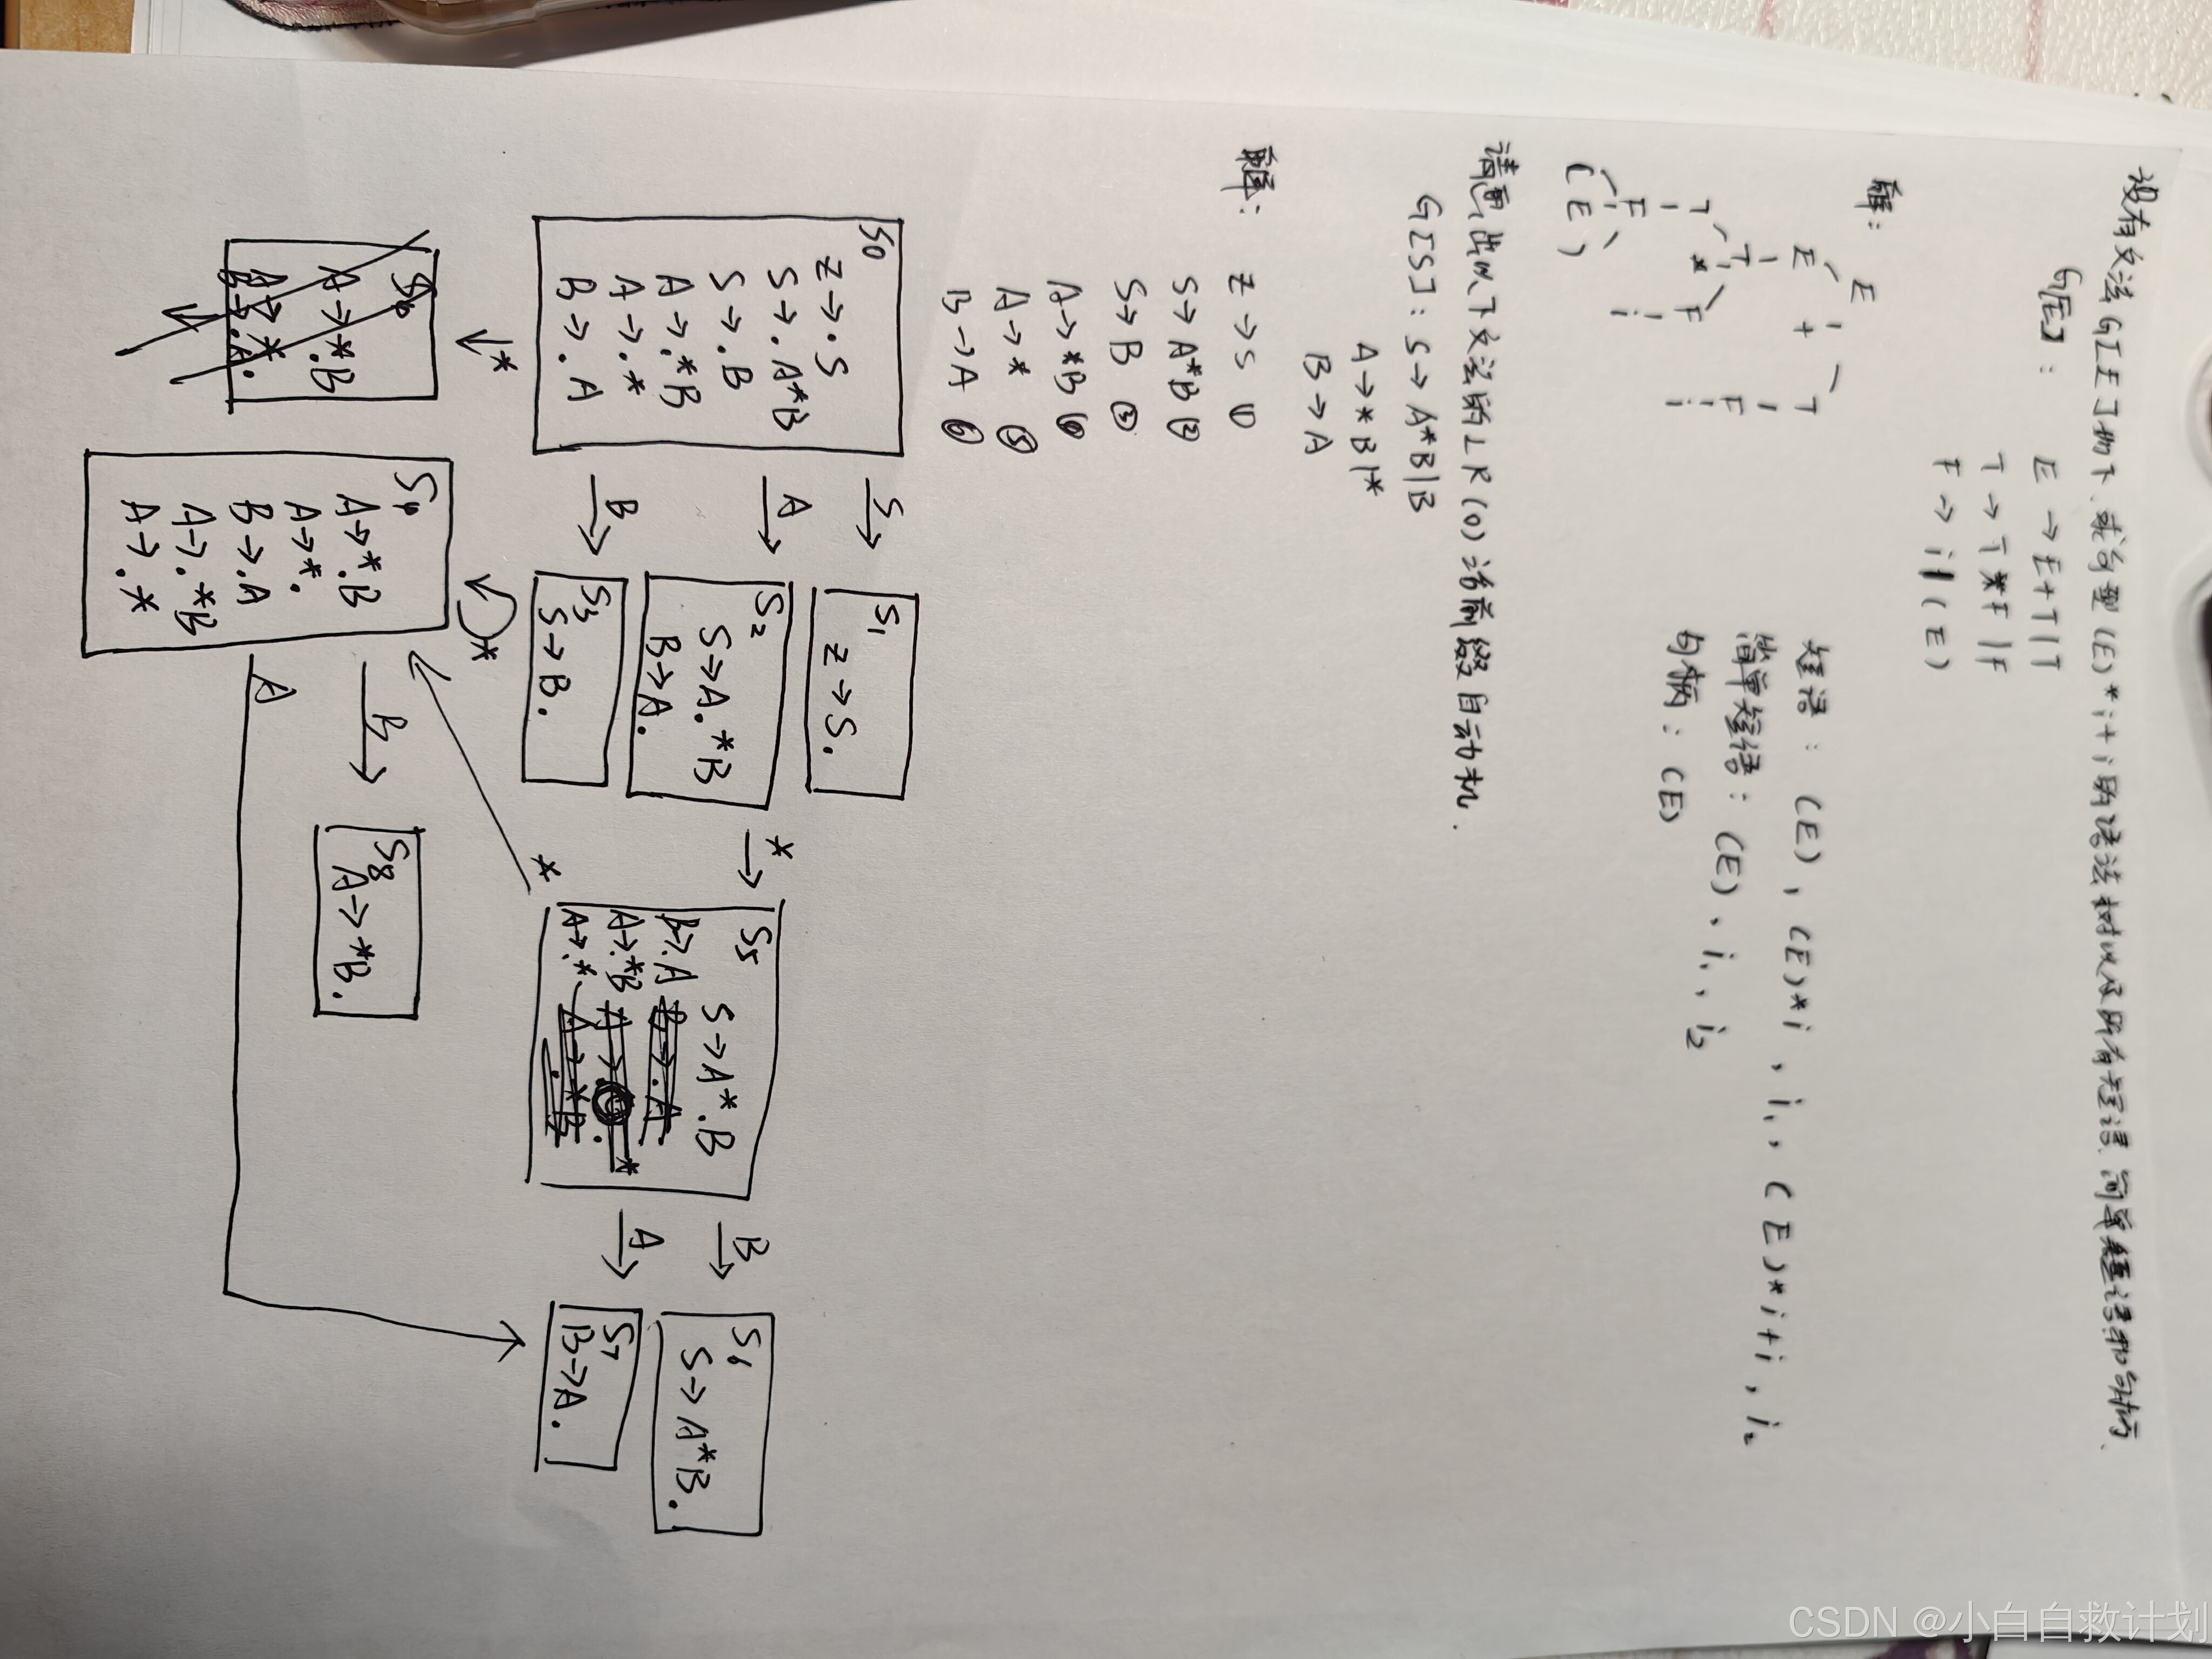 设有文法G[E]如下,求句型(E)*i+i的语法树以及所有短语、简单短语和句柄、
G[E]:
E→E+T|T
T→T*F|F
F→i|(E)
解:
E
E + T
T F
T * F i
F i
(E)
短语:(E),(E)*i,i₁,(E)*i+i,i₂
简单短语:(E)、i₁、i₂
句柄:(E)
请画出以下文法的LR(0)活前缀自动机.
G[S]:S→A*B|B
A→*B|*
B→A
解:
Z→S ①
S→A*B ②
S→B ③
A→*B ④
A→* ⑤
B→A ⑥
S0
Z→.S
S→.A*B
S→.B
A→.*B
A→.*
B→.A
S
A
B
*
S1
Z→S.
S2
S→A.*B
B→A.
S3
S→B.
*
S5
S→A*.B
B→.A
A→.*B
A→.*
B
A
S6
S→A*B.
S7
B→A.
*
*
S4
A→*.B
A→*.
B→.A
A→.*B
A→.*
B
A
S8
A→*B.
CSDN @小白自救计划